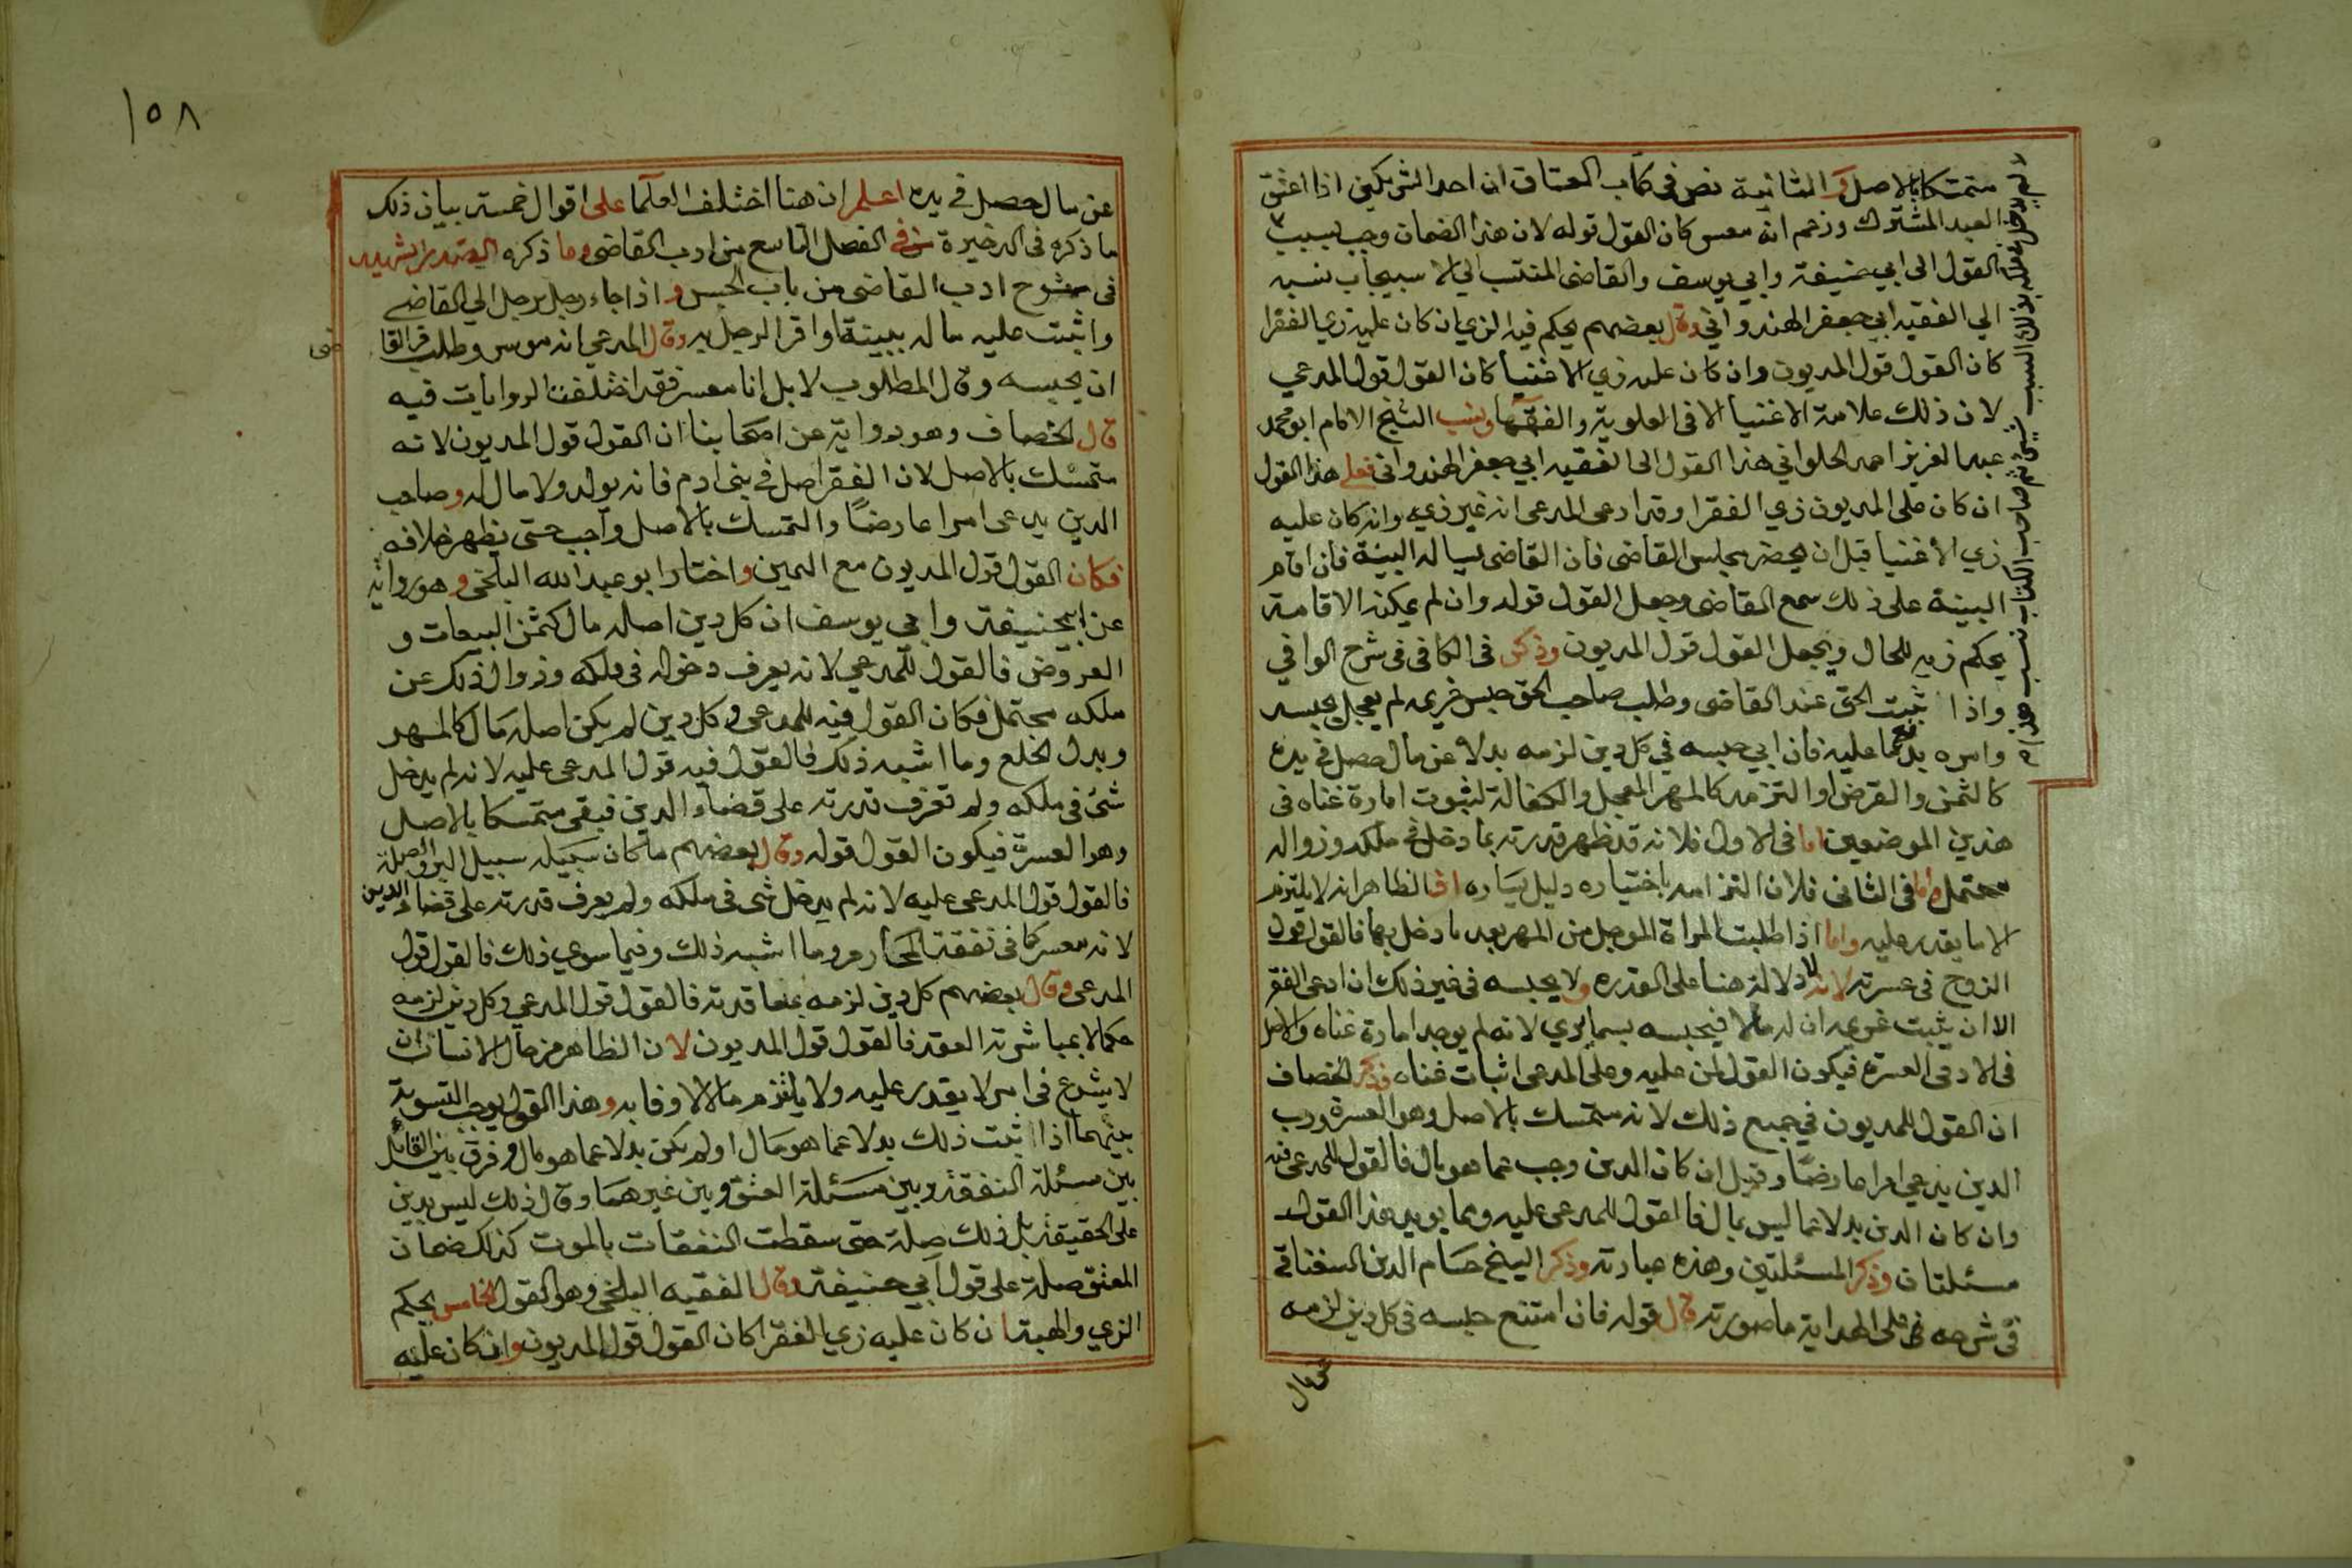 متمسكا بالاصل والثانية نص فى كتاب العتاق ان احد الشريكين اذا اعتق
العبد المشترك وزعم انه معسر كان القول قوله لان هذا الضمان وجب بسبب
القول الى ابي حنيفة وابي يوسف والقاضى المنتسب الي الاسبيجاب نسبه
الي الفقيه ابي جعفر الهندواني وقال بعضهم يحكم فيه الزي ان كان عليه زي الفقرا
كان القول قول المديون وان كان عليه زي الاغنيا كان القول قول المدعي
لان ذلك علامة الاغنيا الا فى العلوية والفقها ونسب الشيخ الامام ابو محمد
عبد العزيز احمد الحلواني هذا القول الى الفقيه ابي جعفر الهندواني فعلى هذا القول
ان كان على المديون زي الفقرا وقد ادعى المدعى انه غير زيه وانه كان عليه
زي الأغنيا قبل ان يحضر مجلس القاضى فان القاضى يساله البينة فان اقام
البينة على ذلك سمع القاضى وجعل القول قوله وان لم يمكنه الاقامة
يحكم زيه للحال ويجعل القول قول المديون وذكر فى الكافى فى شرح الوافي
واذا ثبت الحق عند القاضى وطلب صاحب الحق حبس غريمه لم يعجل بحبسه
وامره بدفع ما عليه فان ابي حبسه في كل دين لزمه بدلا عن مال حصل في يده
كالثمن والقرض او التزمه كالمهر المعجل والكفالة لثبوت امارة غناه فى
هذين الموضعين اما فى الاول فلانه قد ظهر قدرته بما دخل في ملكه وزواله
محتمل واما فى الثانى فلان التزامه باختياره دليل يساره اذ الظاهر انه لا يلتزم
الا ما يقدر عليه واما اذا طلبت المراة الموجل من المهر بعد ما دخل بها فالقول قول
الزوج فى عسرته لانه لا دلالة هنا على القدره ولا يحبسه فى غير ذلك ان ادعى الفقر
الا ان يثبت غريمه ان له مالا فيحبسه بما يرى لانه لم يوجد امارة غناه والاصل
فى الادمى العسرة فيكون القول لمن عليه وعلى المدعى اثبات غناه وذكر الخصاف
ان القول للمديون في جميع ذلك لانه متمسك بالاصل وهو العسرة ورب
الدين يدعي امرا عارضا وقيل ان كان الدين وجب عما هو مال فالقول للمدعى فيه
وان كان الدين بدلا عما ليس بمال فالقول للمدعى عليه ومما يويد هذا القول
مسئلتان وذكر المسئلتين وهذه عبارته وذكر الشيخ حسام الدين السغناقي
فى شرحه على الهداية ما صورته قال قوله فان امتنع حبسه فى كل دين لزمه
عن مال
١٥٨
عن مال حصل في يده اعلم ان هنا اختلف العلما على اقوال خمسة بيان ذلك
ما ذكره فى الدخيرة فى الفصل التاسع من ادب القاضى وما ذكره الصدر الشهيد
فى شرح ادب القاضى من باب الحبس واذا جاء رجل برجل الي القاضى
واثبت عليه ماله ببينة او اقر الرجل به وقال المدعي انه موسر وطلب من القا
ضى
ان يحبسه وقال المطلوب لا بل انا معسر فقد اختلفت الروايات فيه
قال الخصاف وهو رواية عن اصحابنا ان القول قول المديون لانه
متمسك بالاصل لان الفقر اصل في بنى ادم فانه يولد ولا مال له وصاحب
الدين يدعى امرا عارضًا والتمسك بالاصل واجب حتى يظهر خلافه
فكان القول قول المديون مع اليمين واختار ابو عبد الله البلخى وهو رواية
عن ابي حنيفة وابي يوسف ان كل دين اصله مال كثمن البيعات و
العروض فالقول للمدعي لانه يعرف دخوله فى ملكه وزوال ذلك عن
ملكه محتمل فكان القول فيه للمدعي وكل دين لم يكن اصله مال كالمهر
وبدل الخلع وما اشبه ذلك فالقول فيه قول المدعى عليه لانه لم يدخل
شئ فى ملكه ولم تعرف قدرته على قضاء الدين فبقى متمسكا بالاصل
وهو العسرة فيكون القول قوله وقال بعضهم ما كان سبيله سبيل البر والصلة
فالقول قول المدعى عليه لانه لم يدخل شى فى ملكه ولم يعرف قدرته على قضاء الدين
لانه معسر كما فى نفقة المحارم وما اشبه ذلك وفيما سوي ذلك فالقول قول
المدعى وقال بعضهم كل دين لزمه بمعاقدته فالقول قول المدعي وكل دين لزمه
حكما لا بمباشرته العقد فالقول قول المديون لان الظاهر من حال الانسان ان
لا يشرع فى امر لا يقدر عليه ولا يلتزم مالا لا وفا به وهذا القول يوجب التسوية
بينهما اذا ثبت ذلك بدلا عما هو مال او لم يكن بدلا عما هو مال وفرق بين القائل
بين مسئلة النفقة وبين مسئلة العتق وبين غيرهما وقال ذلك ليس بدين
على الحقيقة بل ذلك صلة حتى سقطت النفقات بالموت كذلك ضمان
العتق صلة على قول ابي حنيفة وقال الفقيه البلخى وهو القول الخامس يحكم
الزي والهيئة ان كان عليه زي الفقرا كان القول قول المديون وان كان عليه